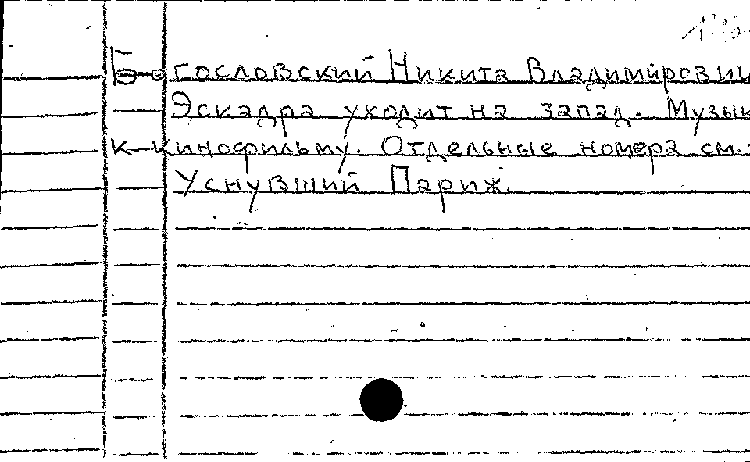 Богословский Никита Владимирович
Эскадра уходит на запад. Музык
к кинофильму. Отдельные номера см.:
Уснувший Париж.